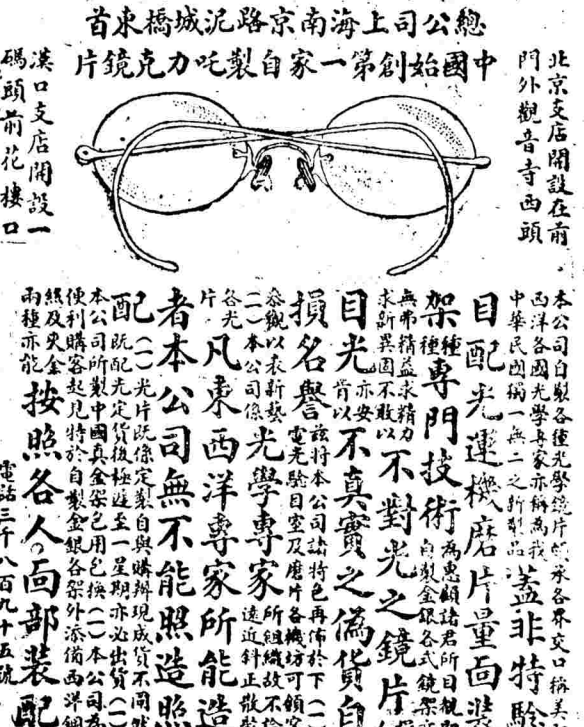 總公司上海南京路泥城橋東首
中國始創第一家自製托力克鏡片
北京支店開設在前
門外觀音寺西頭
漢口支店開設一
碼頭前花樓口
本公司自製各種光學鏡片承各界交口稱美
西洋各國光學專家亦稱為我
中華民國獨一無二之新製品
蓋非特驗
目配光運機磨片量面準
架種種專門技術
為惠顧諸君所目覩
自製金銀各式鏡架
無弗精益求精力
求新異固不敢以
不對光之鏡片
目光亦安肯以不真實之偽貨自
損名譽
茲將本公司諸特色再佈於下(一)
電光驗目室及磨片各機坊可領客
參觀以表新藝
(二)本公司係
光學專家
所組織故不論
遠近斜正散
各光片
凡東西洋專家所能造
者本公司無不能照造照
配
(一)光片既係定製自與購辦現成貨不同然
既配光定貨後極遲至一星期亦必出貨(一)
本公司所製中國真金架包用包換(一)本公司為
便利購客起見特於自製金銀各架外添備西洋鋼
絲及夾金
兩種亦能
按照各人面部裝配
電話三千八百九十五號